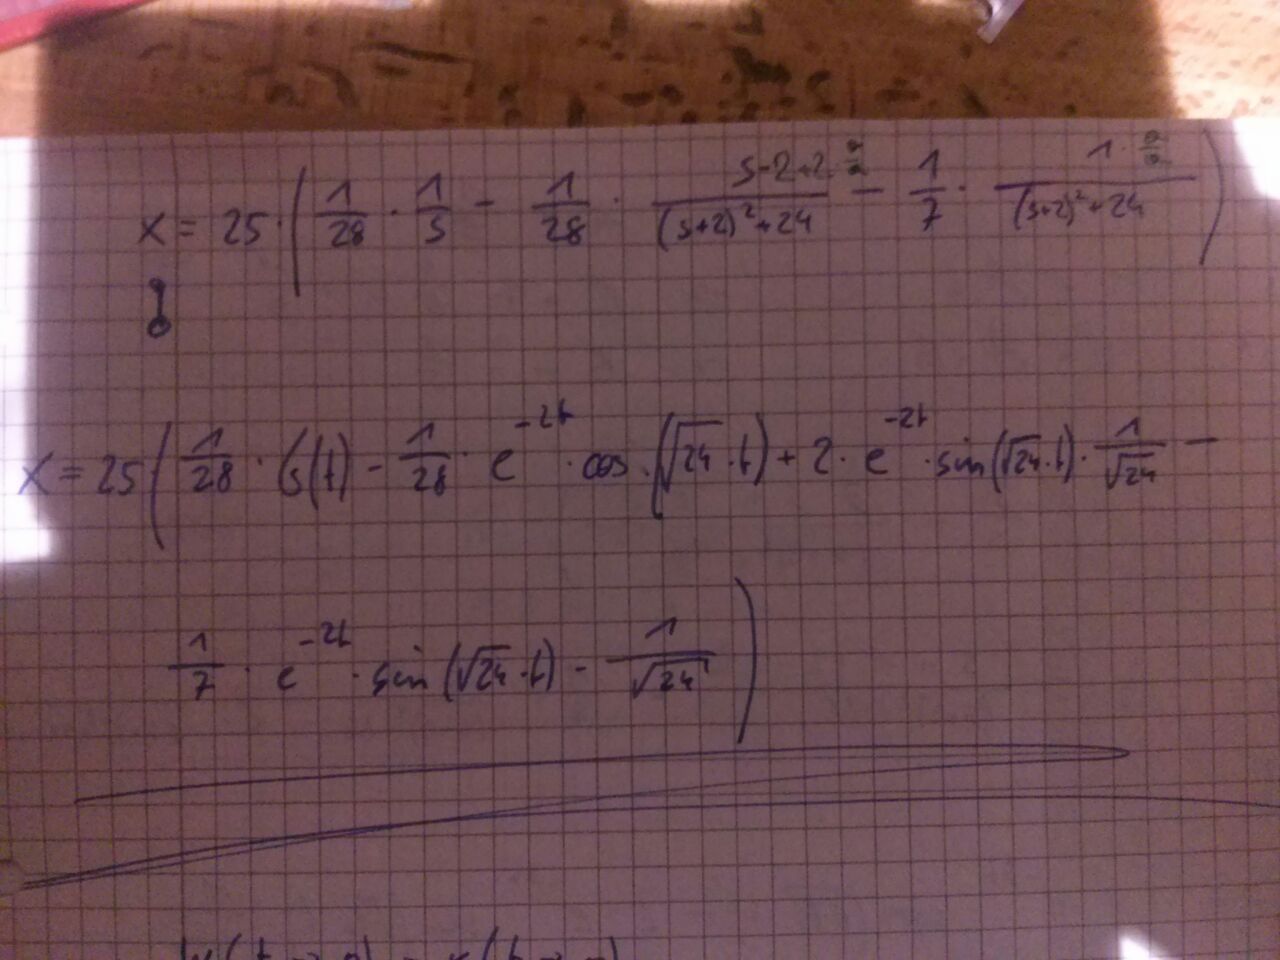 x = 25 · ( 1/28 · 1/s - 1/28 · (s-2+2 · a/a)/((s+2)² + 24) - 1/7 · (1 · a/a)/((s+2)² + 24) )
x = 25 ( 1/28 · 6(t) - 1/28 · e^(-2t) · cos · (√24 · t) + 2 · e^(-2t) · sin(√24 · t) · 1/√24 -
1/7 · e^(-2t) · sin(√24 · t) - 1/√24 )